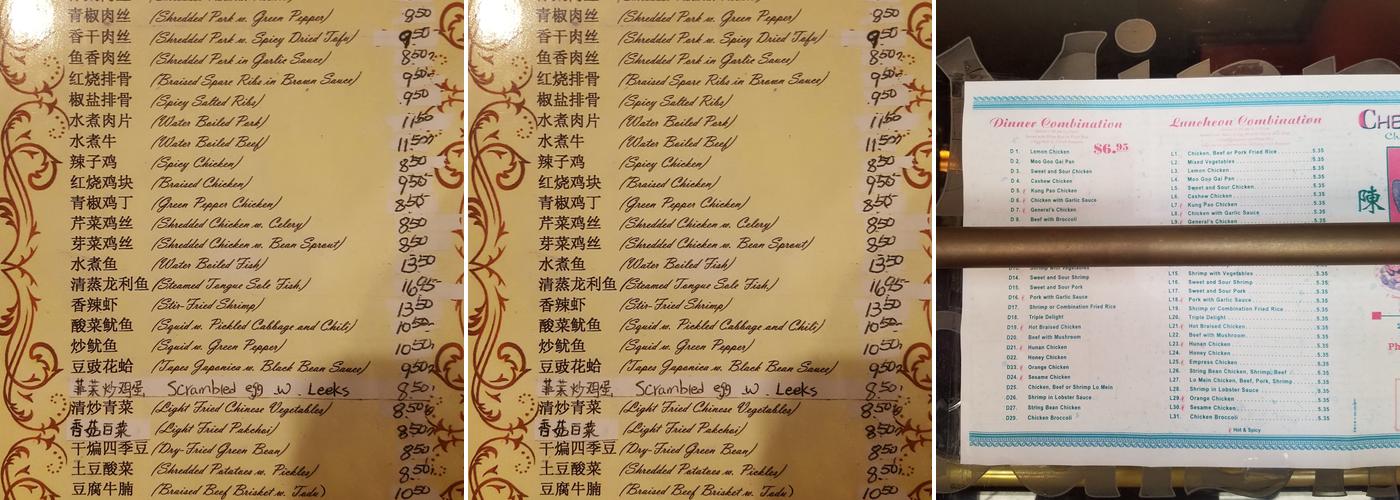 青椒肉丝 (Shredded Pork w. Green Pepper) 8.50
香干肉丝 (Shredded Pork w. Spicy Dried Tofu) 9.50
鱼香肉丝 (Shredded Pork in Garlic Sauce) 8.50
红烧排骨 (Braised Spare Ribs in Brown Sauce) 9.50
椒盐排骨 (Spicy Salted Ribs) 9.50
水煮肉片 (Water Boiled Pork) 11.50
水煮牛 (Water Boiled Beef) 11.50
辣子鸡 (Spicy Chicken) 8.50
红烧鸡块 (Braised Chicken) 9.50
青椒鸡丁 (Green Pepper Chicken) 8.50
芹菜鸡丝 (Shredded Chicken w. Celery) 8.50
芽菜鸡丝 (Shredded Chicken w. Bean Sprout) 8.50
水煮鱼 (Water Boiled Fish) 13.50
清蒸龙利鱼 (Steamed Tongue Sole Fish) 16.95
香辣虾 (Stir-Fried Shrimp) 13.50
酸菜鱿鱼 (Squid w. Pickled Cabbage and Chili) 10.50
炒鱿鱼 (Squid w. Green Pepper) 10.50
豆豉花蛤 (Tapes Japonica w. Black Bean Sauce) 9.50
韭菜炒鸡蛋 Scrambled egg w. Leeks 8.50
清炒青菜 (Light Fried Chinese Vegetables) 8.50
香菇白菜 (Light Fried Pakchoi) 8.50
干煸四季豆 (Dry-Fried Green Bean) 8.50
土豆酸菜 (Shredded Potatoes w. Pickles) 8.50
豆腐牛腩 (Braised Beef Brisket w. Tofu) 10.50
青椒肉丝 (Shredded Pork w. Green Pepper) 8.50
香干肉丝 (Shredded Pork w. Spicy Dried Tofu) 9.50
鱼香肉丝 (Shredded Pork in Garlic Sauce) 8.50
红烧排骨 (Braised Spare Ribs in Brown Sauce) 9.50
椒盐排骨 (Spicy Salted Ribs) 9.50
水煮肉片 (Water Boiled Pork) 11.50
水煮牛 (Water Boiled Beef) 11.50
辣子鸡 (Spicy Chicken) 8.50
红烧鸡块 (Braised Chicken) 9.50
青椒鸡丁 (Green Pepper Chicken) 8.50
芹菜鸡丝 (Shredded Chicken w. Celery) 8.50
芽菜鸡丝 (Shredded Chicken w. Bean Sprout) 8.50
水煮鱼 (Water Boiled Fish) 13.50
清蒸龙利鱼 (Steamed Tongue Sole Fish) 16.95
香辣虾 (Stir-Fried Shrimp) 13.50
酸菜鱿鱼 (Squid w. Pickled Cabbage and Chili) 10.50
炒鱿鱼 (Squid w. Green Pepper) 10.50
豆豉花蛤 (Tapes Japonica w. Black Bean Sauce) 9.50
韭菜炒鸡蛋 Scrambled egg w. Leeks 8.50
清炒青菜 (Light Fried Chinese Vegetables) 8.50
香菇白菜 (Light Fried Pakchoi) 8.50
干煸四季豆 (Dry-Fried Green Bean) 8.50
土豆酸菜 (Shredded Potatoes w. Pickles) 8.50
豆腐牛腩 (Braised Beef Brisket w. Tofu) 10.50
Dinner Combination
$6.95
D 1. Lemon Chicken
D 2. Moo Goo Gai Pan
D 3. Sweet and Sour Chicken
D 4. Cashew Chicken
D 5. Kung Pao Chicken
D 6. Chicken with Garlic Sauce
D 7. General's Chicken
D 8. Beef with Broccoli
D13. Shrimp with Vegetables
D14. Sweet and Sour Shrimp
D15. Sweet and Sour Pork
D16. Pork with Garlic Sauce
D17. Shrimp or Combination Fried Rice
D18. Triple Delight
D19. Hot Braised Chicken
D20. Beef with Mushroom
D21. Hunan Chicken
D22. Honey Chicken
D23. Orange Chicken
D24. Sesame Chicken
D25. Chicken, Beef or Shrimp Lo Mein
D26. Shrimp in Lobster Sauce
D27. String Bean Chicken
D29. Chicken Broccoli
Luncheon Combination
L1. Chicken, Beef or Pork Fried Rice 5.35
L2. Mixed Vegetables 5.35
L3. Lemon Chicken 5.35
L4. Moo Goo Gai Pan 5.35
L5. Sweet and Sour Chicken 5.35
L6. Cashew Chicken 5.35
L7. Kung Pao Chicken 5.35
L8. Chicken with Garlic Sauce 5.35
L9. General's Chicken 5.35
L15. Shrimp with Vegetables 5.35
L16. Sweet and Sour Shrimp 5.35
L17. Sweet and Sour Pork 5.35
L18. Pork with Garlic Sauce 5.35
L19. Shrimp or Combination Fried Rice 5.35
L20. Triple Delight 5.35
L21. Hot Braised Chicken 5.35
L22. Beef with Mushroom 5.35
L23. Hunan Chicken 5.35
L24. Honey Chicken 5.35
L25. Empress Chicken 5.35
L26. String Bean Chicken, Shrimp, Beef 5.35
L27. Lo Mein Chicken, Beef, Pork, Shrimp 5.35
L28. Shrimp in Lobster Sauce 5.35
L29. Orange Chicken 5.35
L30. Sesame Chicken 5.35
L31. Chicken Broccoli 5.35
Hot & Spicy
陳